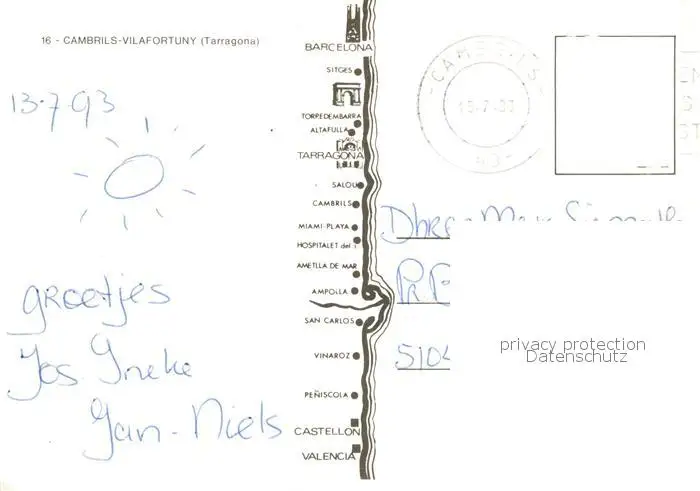 16 - CAMBRILS-VILAFORTUNY (Tarragona)
13-7-93
groetjes
Jos Ineke
Jan-Niels
BARCELONA
SITGES
TORREDEMBARRA
ALTAFULLA
TARRAGONA
SALOU
CAMBRILS
MIAMI-PLAYA
HOSPITALET del I
AMETLLA DE MAR
AMPOLLA
SAN CARLOS
VINAROZ
PEÑISCOLA
CASTELLON
VALENCIA
CAMBRILS
43
510
privacy protection
Datenschutz